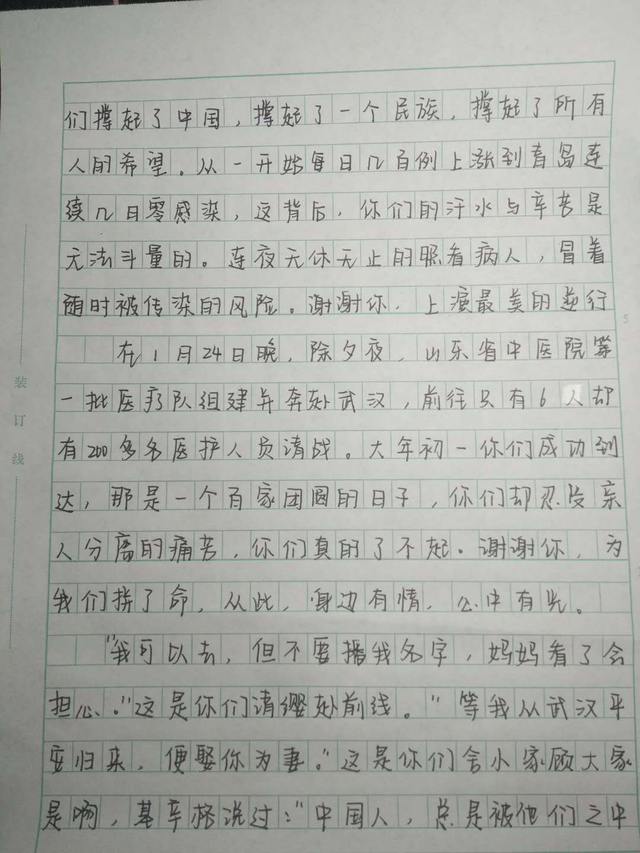 们撑起了中国，撑起了一个民族，撑起了所有
人的希望。从一开始每日几百例上涨到青岛连
续几日零感染，这背后，你们的汗水与辛苦是
无法斗量的。连夜无休无止的照看病人，冒着
随时被传染的风险。谢谢你，上演最美的逆行
在1月24日晚，除夕夜，山东省中医院等
一批医疗队组建并奔赴武汉，前往只有6人却
有200多名医护人员请战。大年初一你们成功到
达，那是一个百家团圆的日子，你们却忍受亲
人分离的痛苦，你们真的了不起。谢谢你，为
我们拼了命，从此，身边有情，心中有光。
“我可以去，但不要播我名字，妈妈看了会
担心。”这是你们请缨赴前线。“等我从武汉平
安归来，便娶你为妻。”这是你们舍小家顾大家
是啊，基辛格说过：“中国人，总是被他们之中
装订线
5